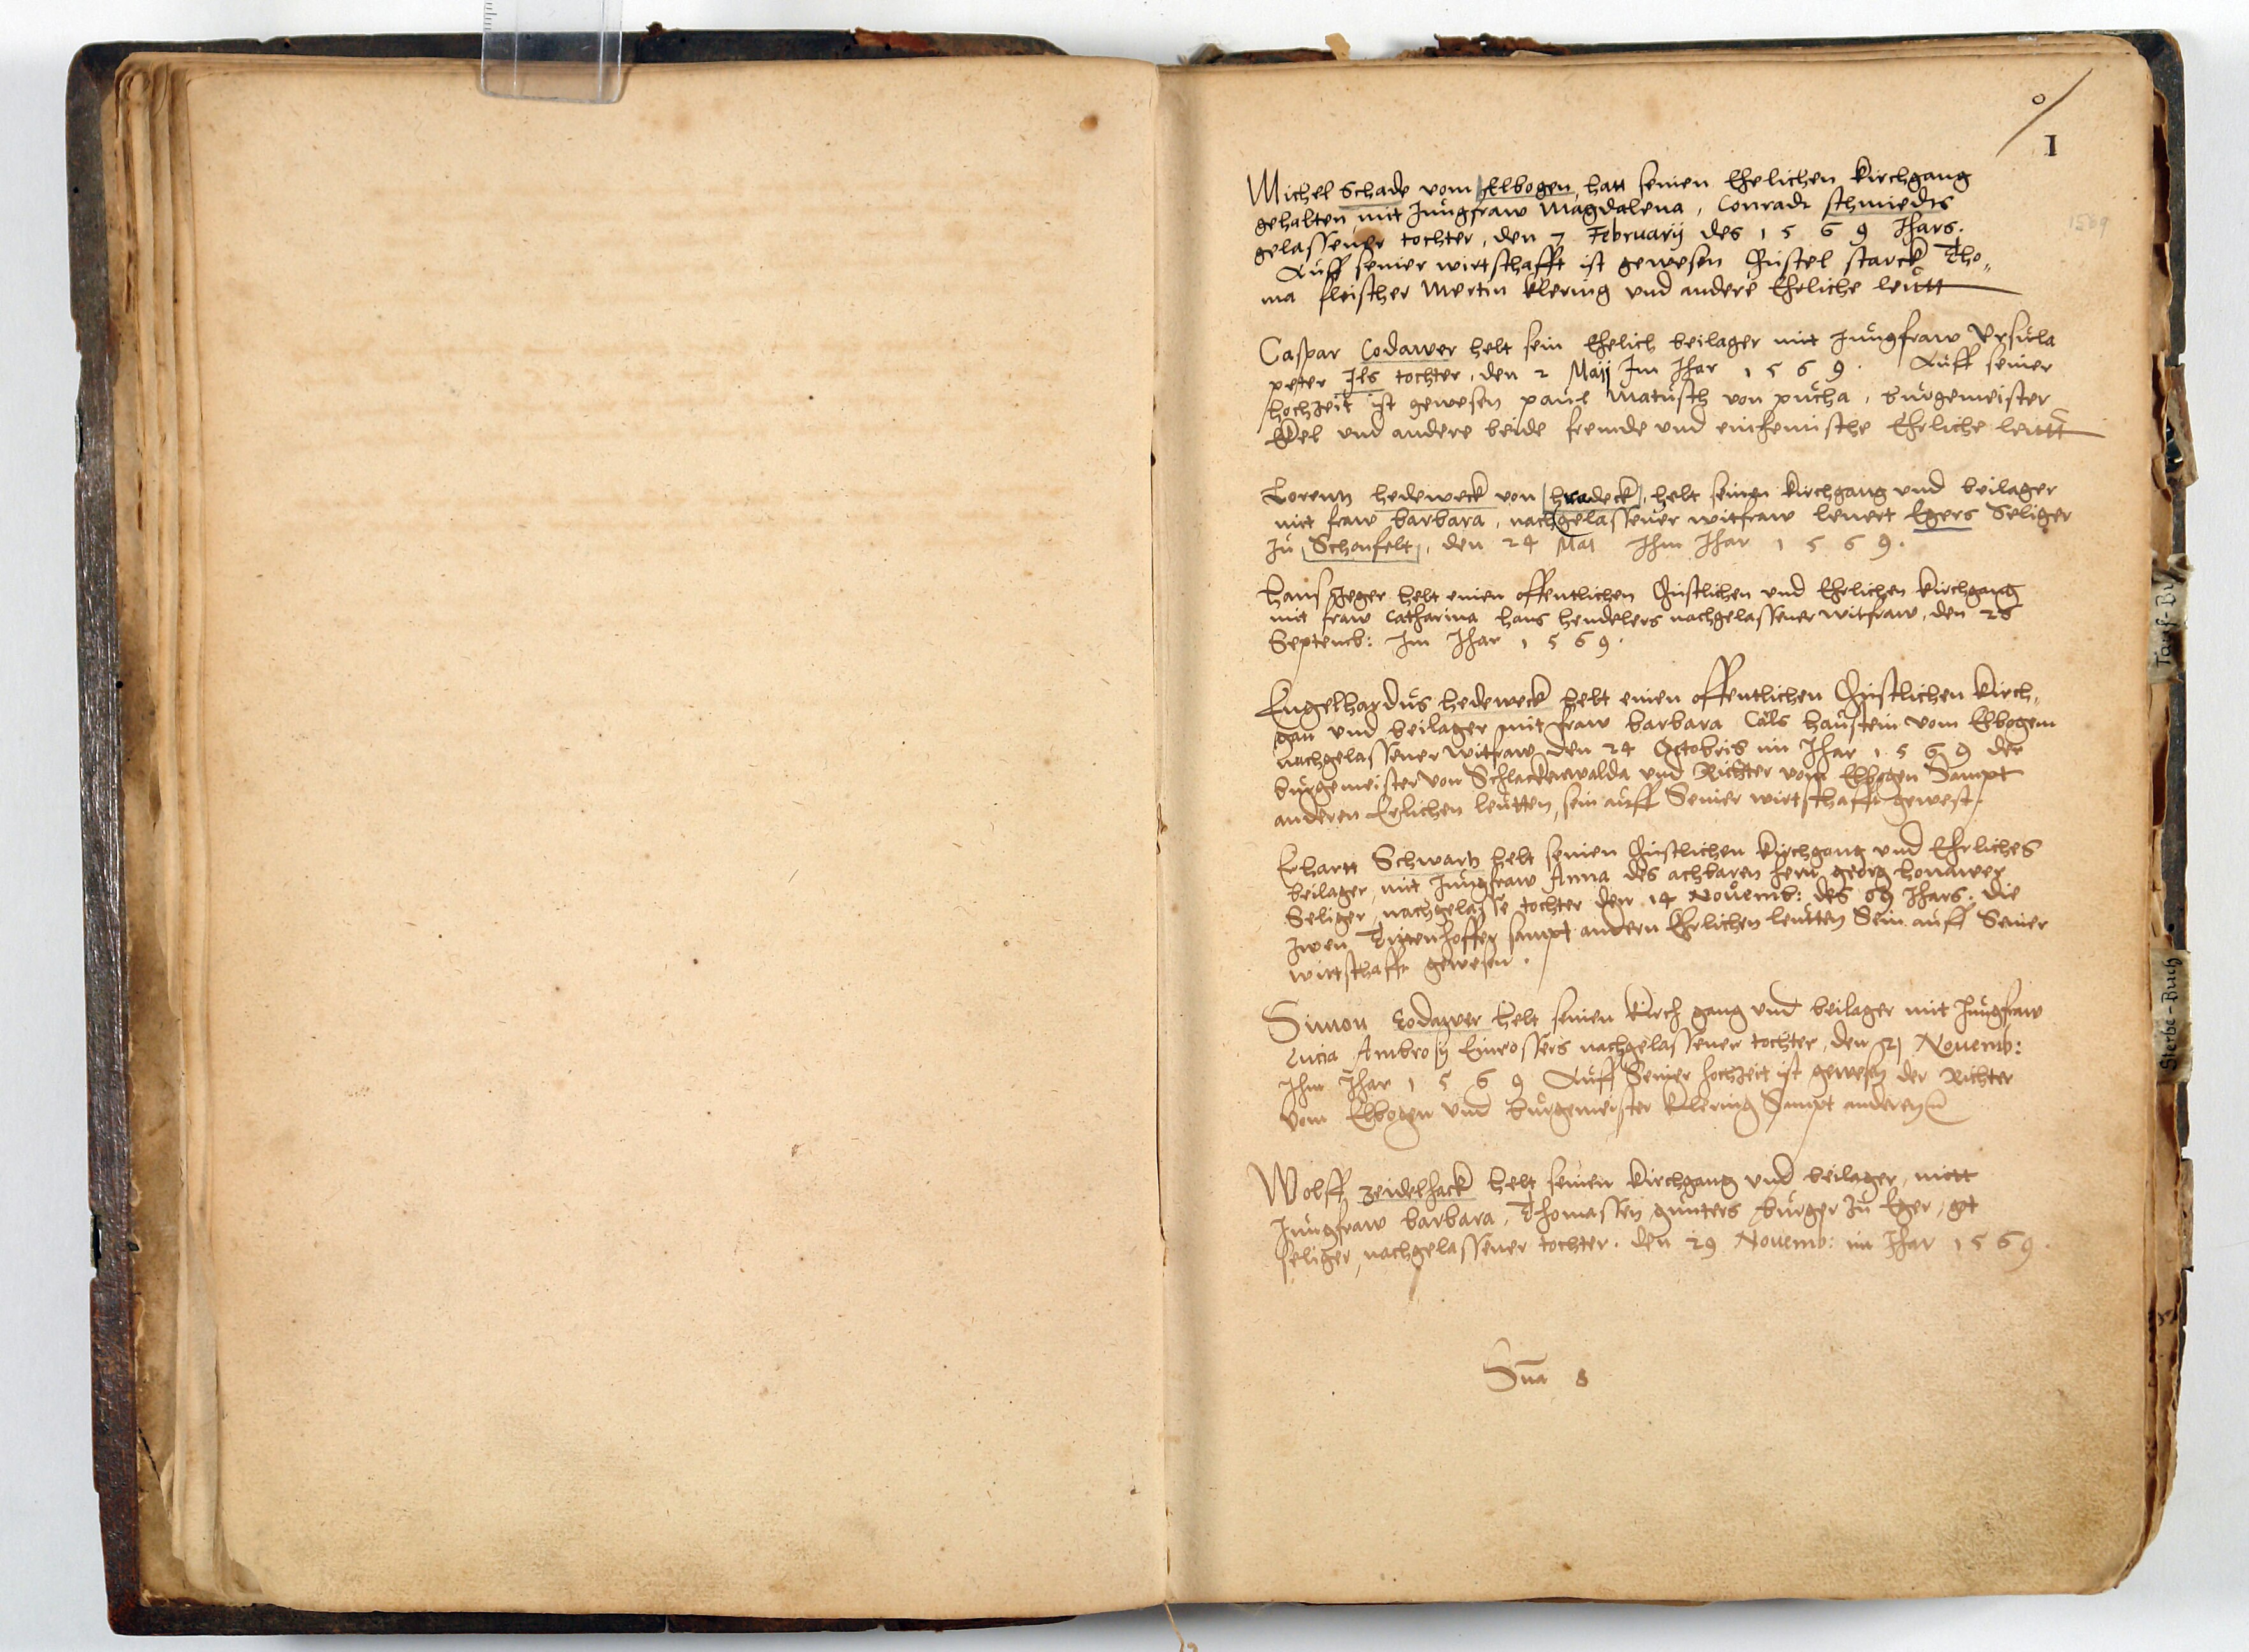 0
I
1569
Michel Schade vom Elbogen, hatt seinen Ehelichen kirchgang
gehalten, mit Jungfraw Magdalena, Conradt schmiedts
gelassener tochter, den 7 Februarij des 1569 Jhars.
Auff seiner wirtschafft ist gewesen Christel starck Tho„
ma fleischer Mertin Klering vnd andere Ehrliche leutt
Caspar Codawer helt sein Ehelich beilager mit Jungfraw Vrsula
peter Ils tochter, den 2 Maij Im Jhar 1569. Auff seiner
hochzeit ist gewesen paul Matusch von pucha, burgemeister
vnd andere beide fremde vnd einhemische Ehrliche leutt
Lorentz hedeweck von hradeck, helt seinen kirchgang vnd beilager
mit fraw barbara, nachgelassener witfraw lenert Egers Seliger
zu Schonfelt, den 24 Mai Ihm Jhar 1569.
hans Jeger helt einen offentlichen Christlichen vnd Ehrlichen kirchgang
mit fraw Catharina hans hendelers nachgelassener witfraw, den 28
Septemb: Im Jhar 1569.
Engelhardus hedeweck helt einen offentlichen Christlichen kirch„
gan vnd beilager mit fraw barbara hanstein vom Elbogen
nachgelassener witfraw den 24 Octobris im Jhar 1569 der
burgemeister von Schlackenwalda vnd Richter vom Elbogen Sampt
anderen Erlichen leutten, sein auff Seiner wirtschafft gewest.
Erhartt Schwartz helt seinen Christlichen kirchgang vnd Ehrliches
beilager, mit Jungfraw Anna des achbaren hern georg honawer
Seliger, nachgelasse tochter den 14 Nouemb: des 69 Jhars. die
zwen sampt andern Ehrlichen leutten Sein auff Seiner
wirttschafft gewesen.
Simon Codawer helt seinen kirch gang vnd beilager mit Jungfraw
Lucia Ambrosij nachgelassener tochter, den 21 Nouemb:
Ihm Jhar 1569 Auff Seiner hochzeit ist gewesen der Richter
vom Elbogen vnd burgemeister Klering Sampt anderen
Wolff zeidelhack helt seinen kirchgang vnd beilager, mitt
Jungfraw barbara, Thomassen gunters burger zu Eger, got
seliger, nachgelassener tochter. den 29 Nouemb: im Jhar 1569.
Sua 8
Tauf-Bu
Sterbe-Buch